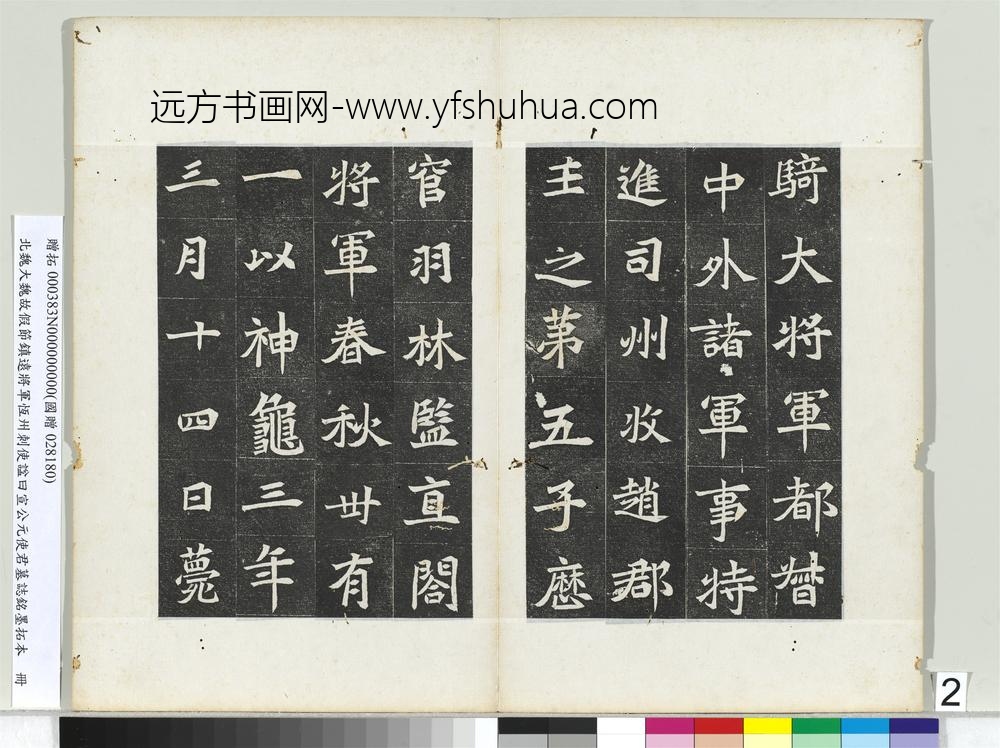 远方书画网-www.yfshuhua.com
騎大將軍都督
中外諸軍事特
進司州牧趙郡
主之第五子歷
官羽林監直閤
將軍春秋卅有
一以神龜三年
三月十四日薨
贈拓 000383N000000000(國贈 028180)
北魏大魏故假節鎮遠將軍恆州刺使諡曰宣公元使君墓誌銘墨拓本 冊
2